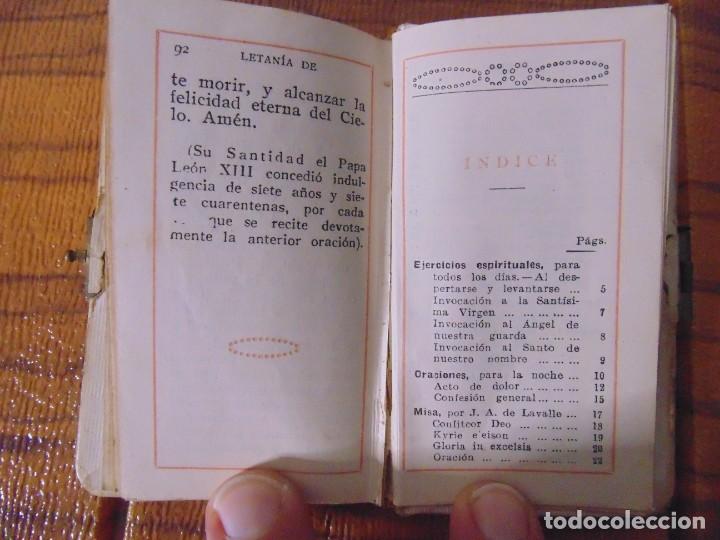 92 LETANÍA DE
te morir, y alcanzar la
felicidad eterna del Cie-
lo. Amén.
(Su Santidad el Papa
León XIII concedió indul-
gencia de siete años y sie-
te cuarentenas, por cada
que se recite devota-
mente la anterior oración).
ÍNDICE
Págs.
Ejercicios espirituales, para
todos los días.—Al des-
pertarse y levantarse ... 5
Invocación a la Santísi-
ma Virgen ... ... ... ... 7
Invocación al Ángel de
nuestra guarda ... ... 8
Invocación al Santo de
nuestro nombre ... ... 9
Oraciones, para la noche ... 10
Acto de dolor ... ... ... 12
Confesión general ... ... 15
Misa, por J. A. de Lavalle ... 17
Confiteor Deo ... ... ... 18
Kyrie e'eison ... ... ... 19
Gloria in excelsis ... ... 20
Oración ... ... ... ... ... 22
todocoleccion.net